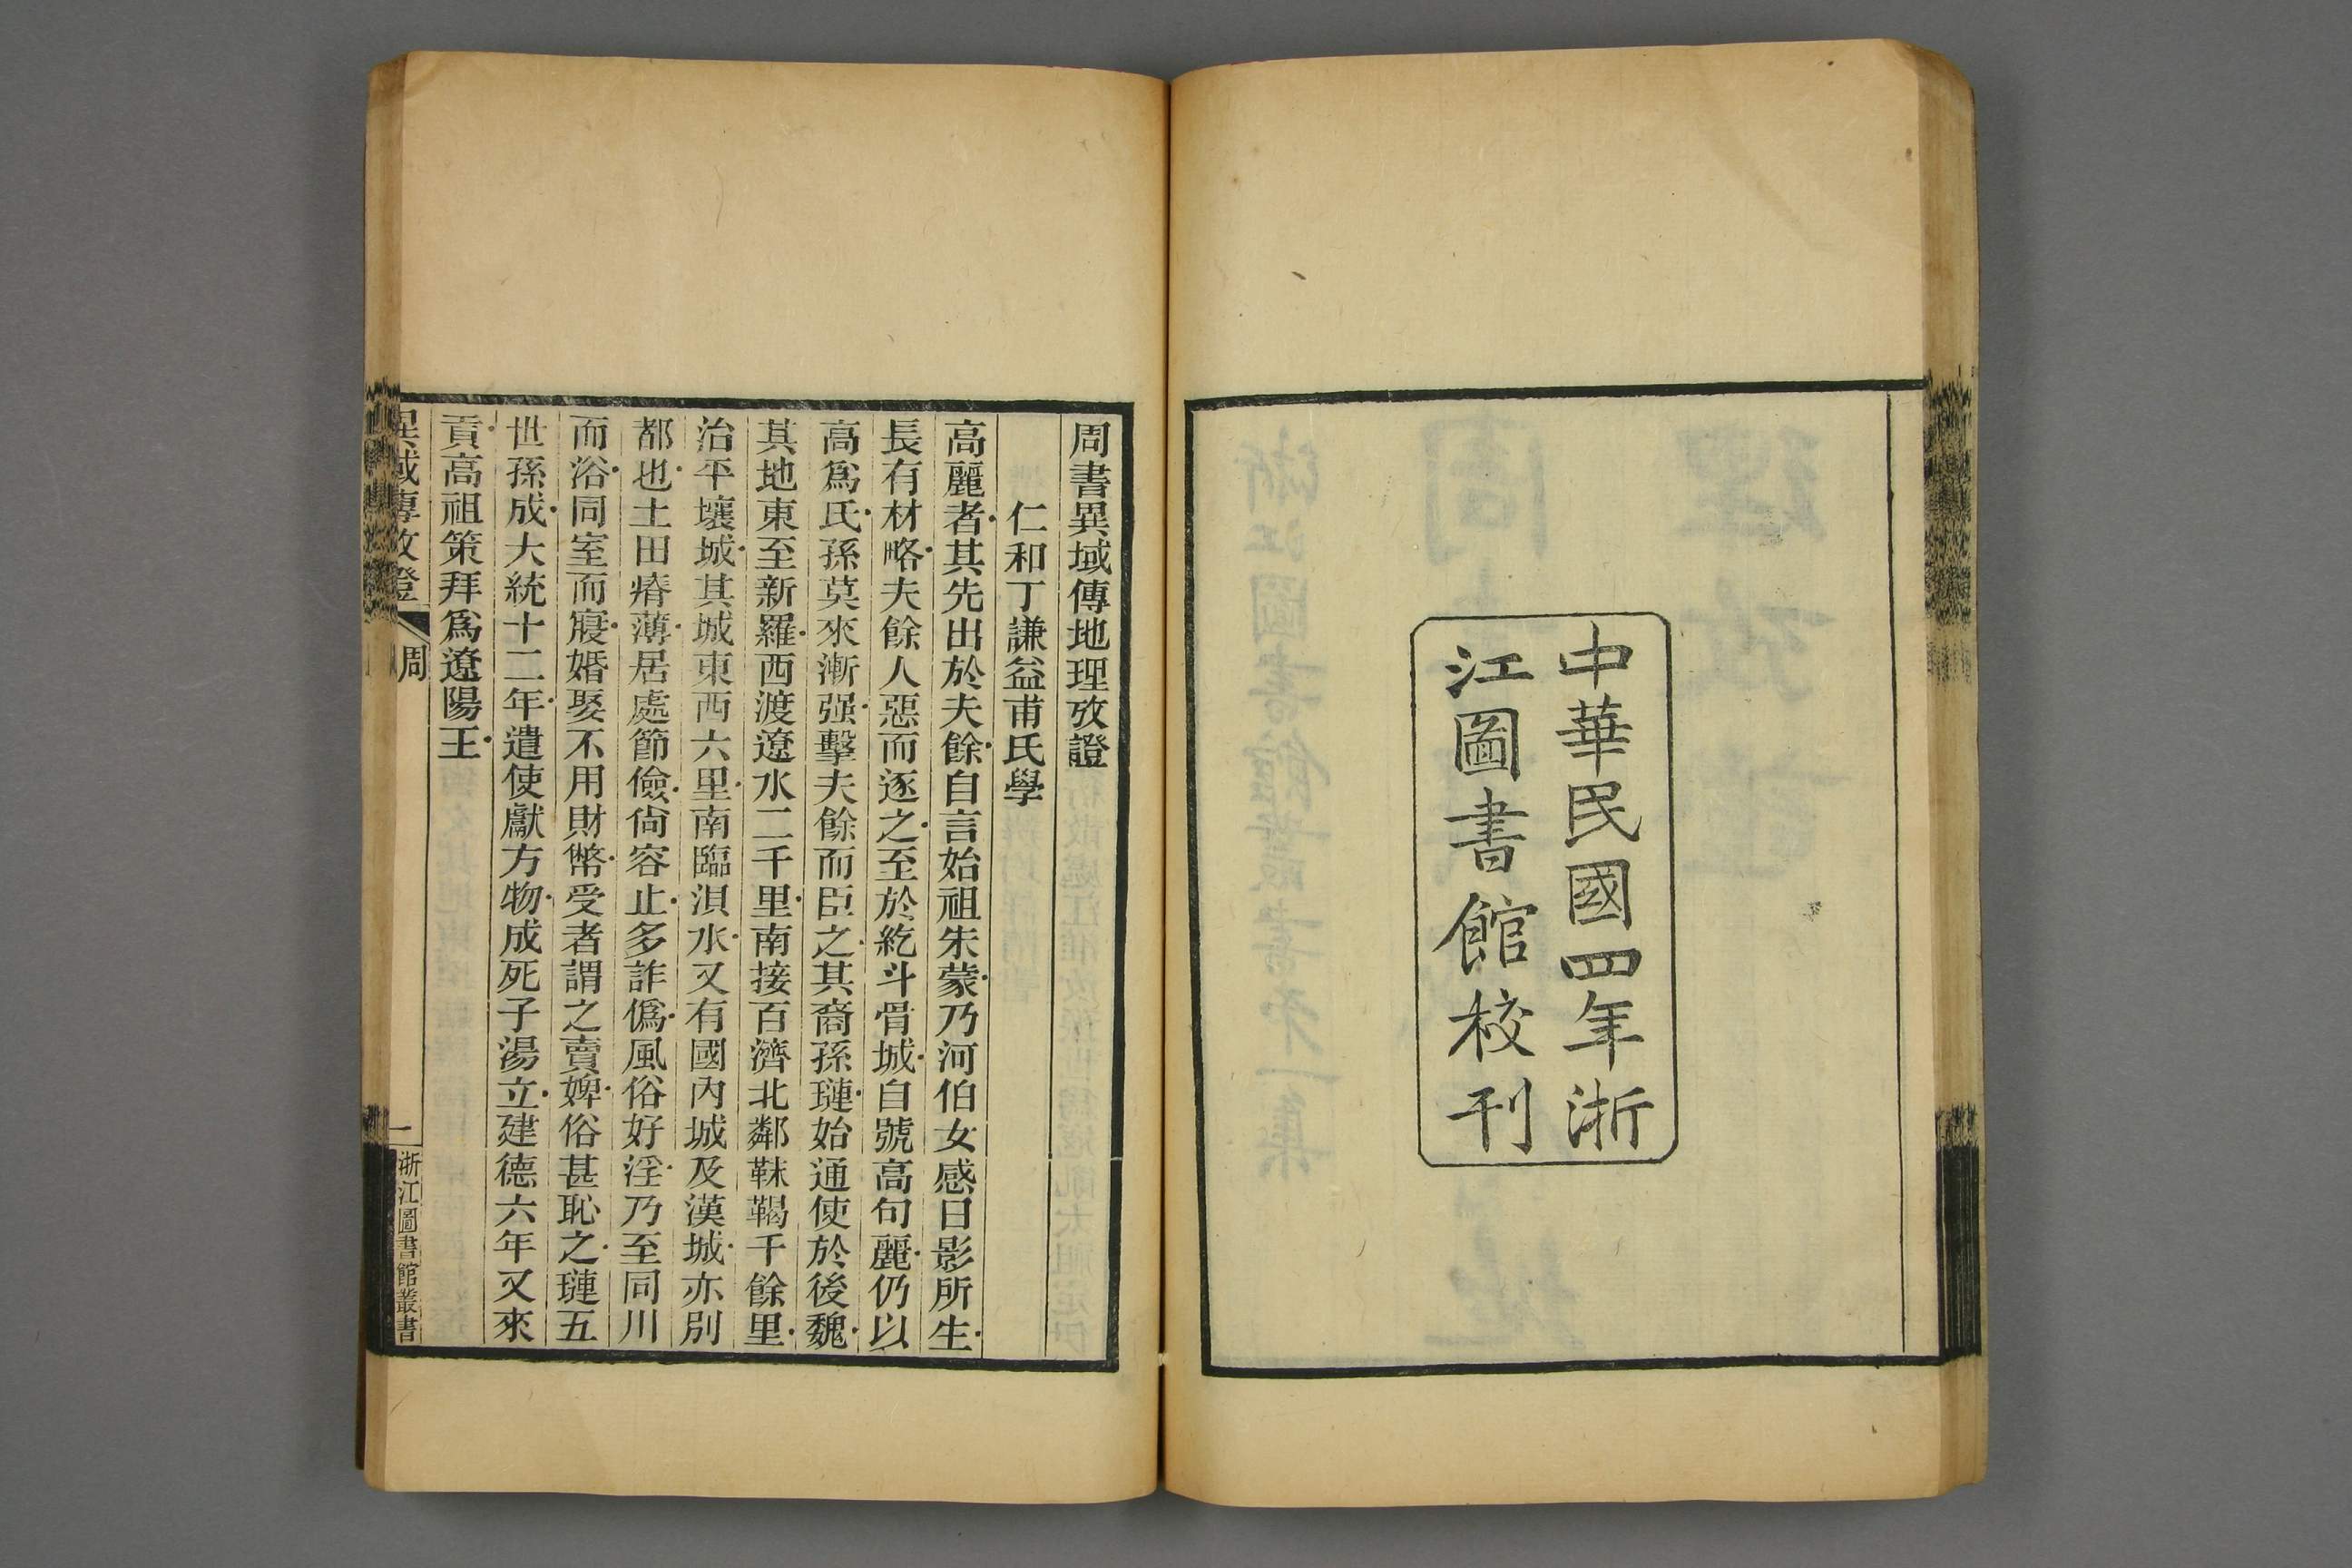 中華民國四年浙
江圖書館校刊
周書異域傳地理攷證
仁和丁謙益甫氏學
高麗者其先出於夫餘自言始祖朱蒙乃河伯女感日影所生
長有材略夫餘人惡而逐之至於紇斗骨城自號高句麗仍以
高爲氏孫莫來漸强擊夫餘而臣之其裔孫璉始通使於後魏
其地東至新羅西渡遼水二千里南接百濟北鄰靺鞨千餘里
治平壤城其城東西六里南臨浿水又有國內城及漢城亦別
都也土田瘠薄居處節儉尙容止多詐僞風俗好淫乃至同川
而浴同室而寢婚娶不用財幣受者謂之賣婢俗甚恥之璉五
世孫成大統十二年遣使獻方物成死子湯立建德六年又來
貢高祖策拜爲遼陽王
異域傳攷證
周
一
浙江圖書館叢書